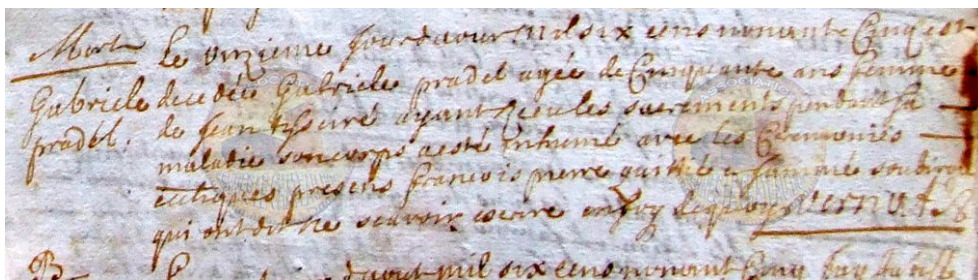 Mort
Gabriele
pradel.
le onzieme jour daoust mil six cens nonante Cinq est
decedée Gabriele pradel agée de Cinquante ans femme
de Jean ayant Receu les sacrements pendant sa
maladie son corps a esté Inhumé avec les Ceremonies
presens francois pierre
qui ont dit ne scavoir escrire en foy de quoy
daoust mil six cens nonante Cinq